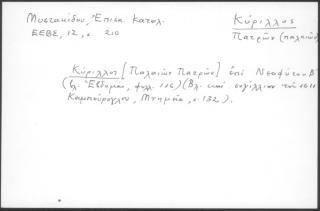 Μυστακίδου, Ἐπισκ. κατάλ.
ΕΕΒΣ, 12, σ. 210
Κύριλλος
Πατρῶν (παλαιῶν)
Κύριλλος [Παλαιῶν Πατρῶν] ἐπὶ Νεοφύτου Β΄
(βλ. Ἑβδομάς, φυλλ. 116) (Βλ. καὶ σιγίλλιον τοῦ 1611
Καμπούρογλου, Μνημεῖα, σ. 132).